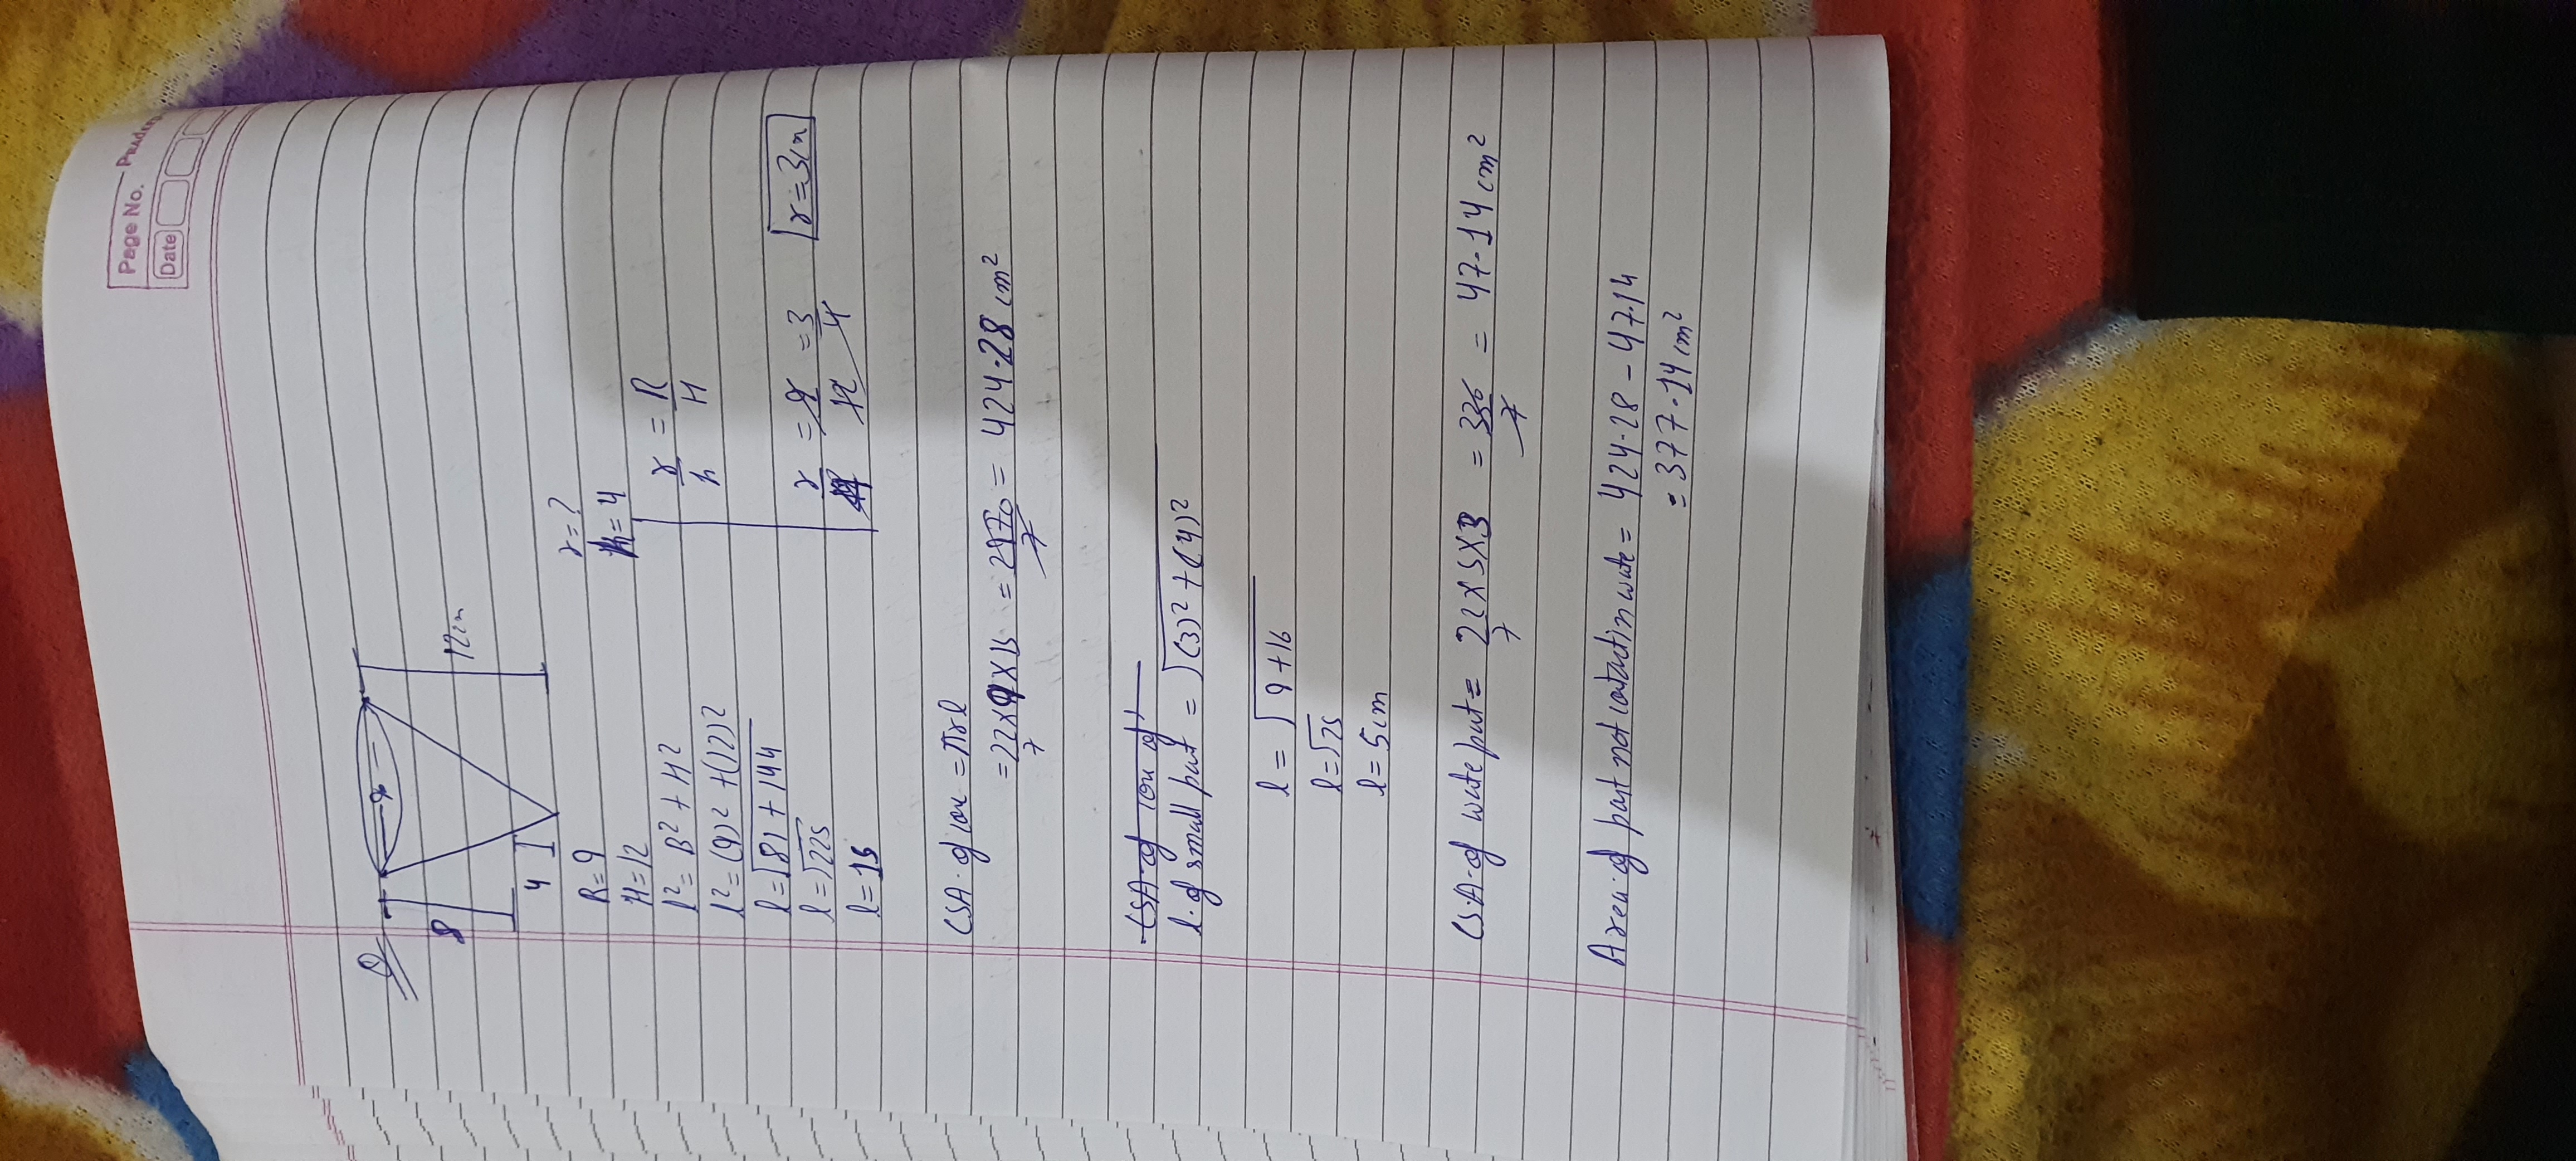 Page No.
Date
Q
9
8
12cm
4
R=9
r=?
H=12
h=4
l²=B²+H²
r/h = R/H
l²=(9)²+(12)²
l=√81+144
r/4 = 9/12 = 3/4
r=3cm
l=√225
l=15
CSA of cone = πrl
= 22/7 ×9×15 = 2970/7 = 424.28 cm²
CSA of cone of
l. of small part = √(3)²+(4)²
l = √9+16
l=√25
l=5cm
CSA of wate part = 22/7 ×5×3 = 330/7 = 47.14 cm²
Area of part not contact in wate = 424.28 - 47.14
= 377.14 cm²